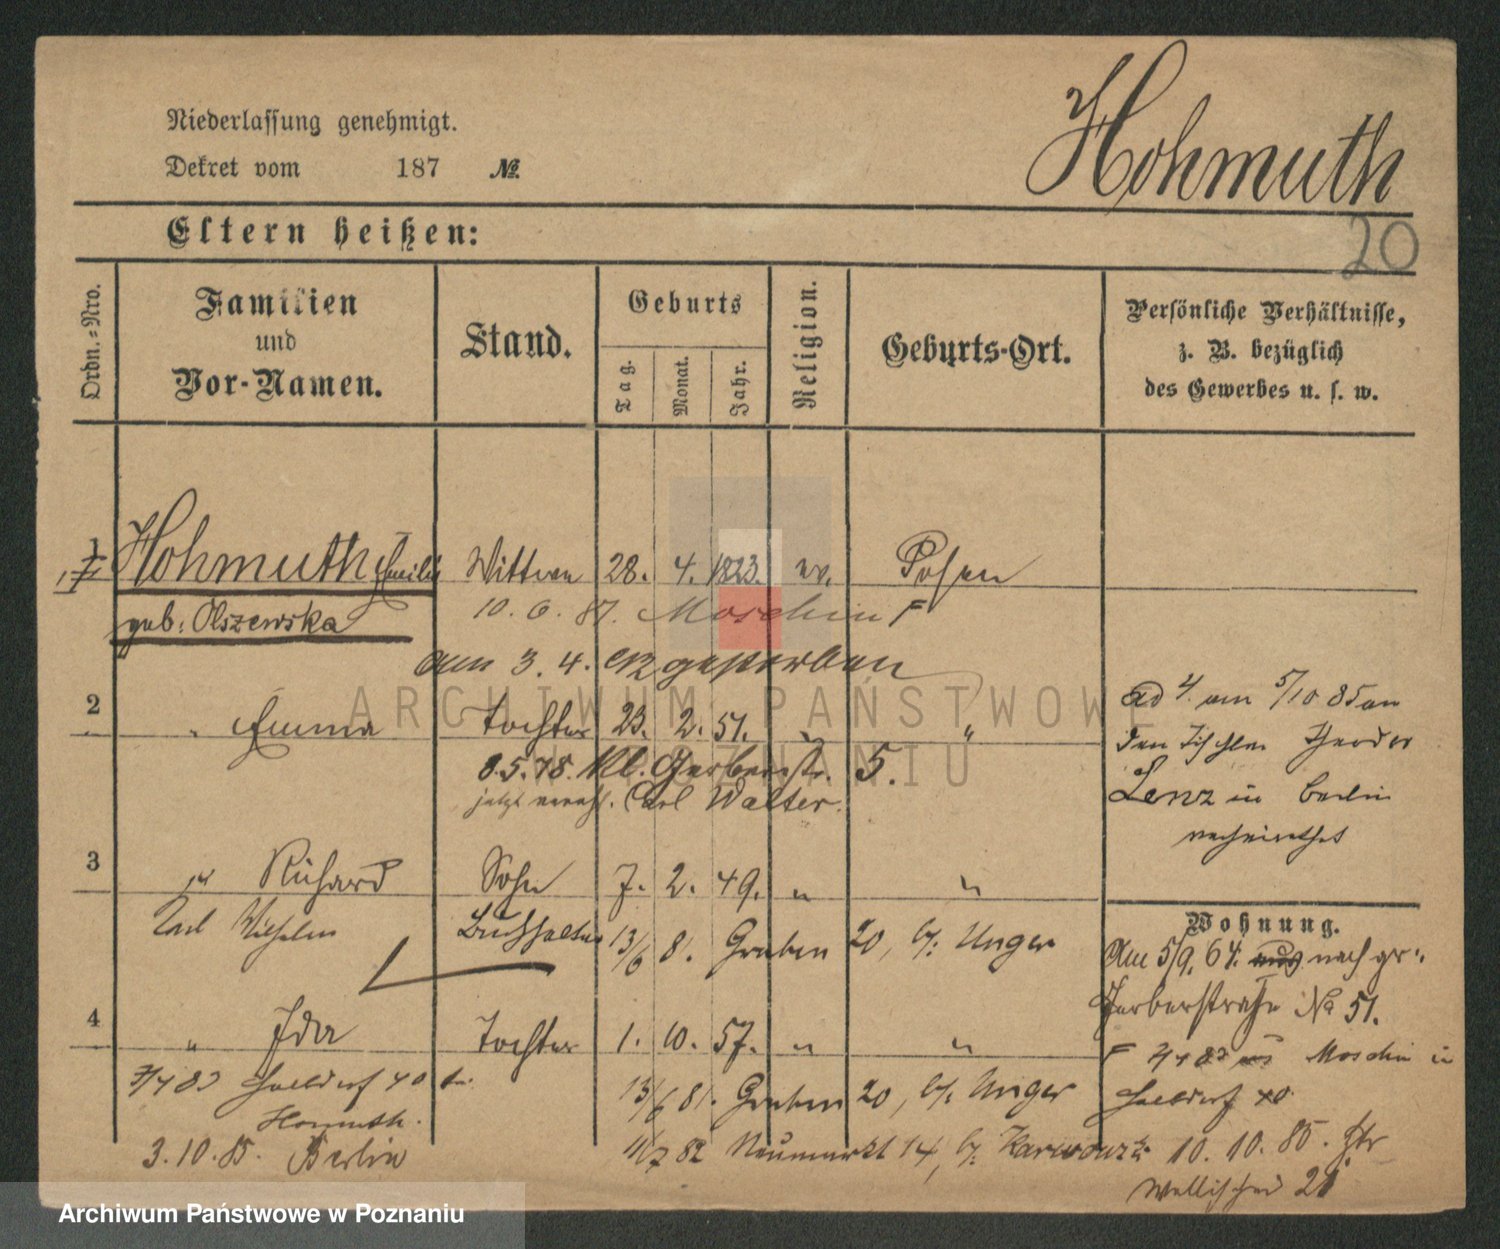 Hohmuth
Niederlassung genehmigt.
Dekret vom 187 №
20
Eltern heißen:
Ordn.-Nro.
Familien und Vor-Namen.
Stand.
Geburts
Tag.
Monat.
Jahr.
Religion.
Geburts-Ort.
Persönliche Verhältnisse,
z. B. bezüglich
des Gewerbes u. s. w.
1 Hohmuth Emilie Wittwe 28. 4. 1823. ev. Posen
geb. Olszewska 10. 6. 87. Moschin
am 3. 4. gestorben
2 " Emma Tochter 23. 2. 51. " "
8. 5. 78. Kl. Gerberstr. 5.
jetzt verehl. Carl Walter.
ad 4. am 5/10 85 an
den Tischler Theodor
Lenz in Berlin
verheirathet
3 Richard Sohn 7. 2. 49. " "
Carl Wilhelm Buchhalter 13/6 81. Graben 20, b/. Unger
Wohnung.
Am 5/9. 64. nach gr.
Gerberstraße No 51.
4 " Ida Tochter 1. 10. 57. " "
Moschin in
Halldorf 40
13/6 81. Graben 20, b/. Unger
Halldorf 40 b.
Homuth.
3. 10. 85. Berlin
11/7 82 Neumarkt 14, b/.
10. 10. 85. Gr
Wallischei 21
ARCHIWUM PAŃSTWOWE
W POZNANIU
Archiwum Państwowe w Poznaniu